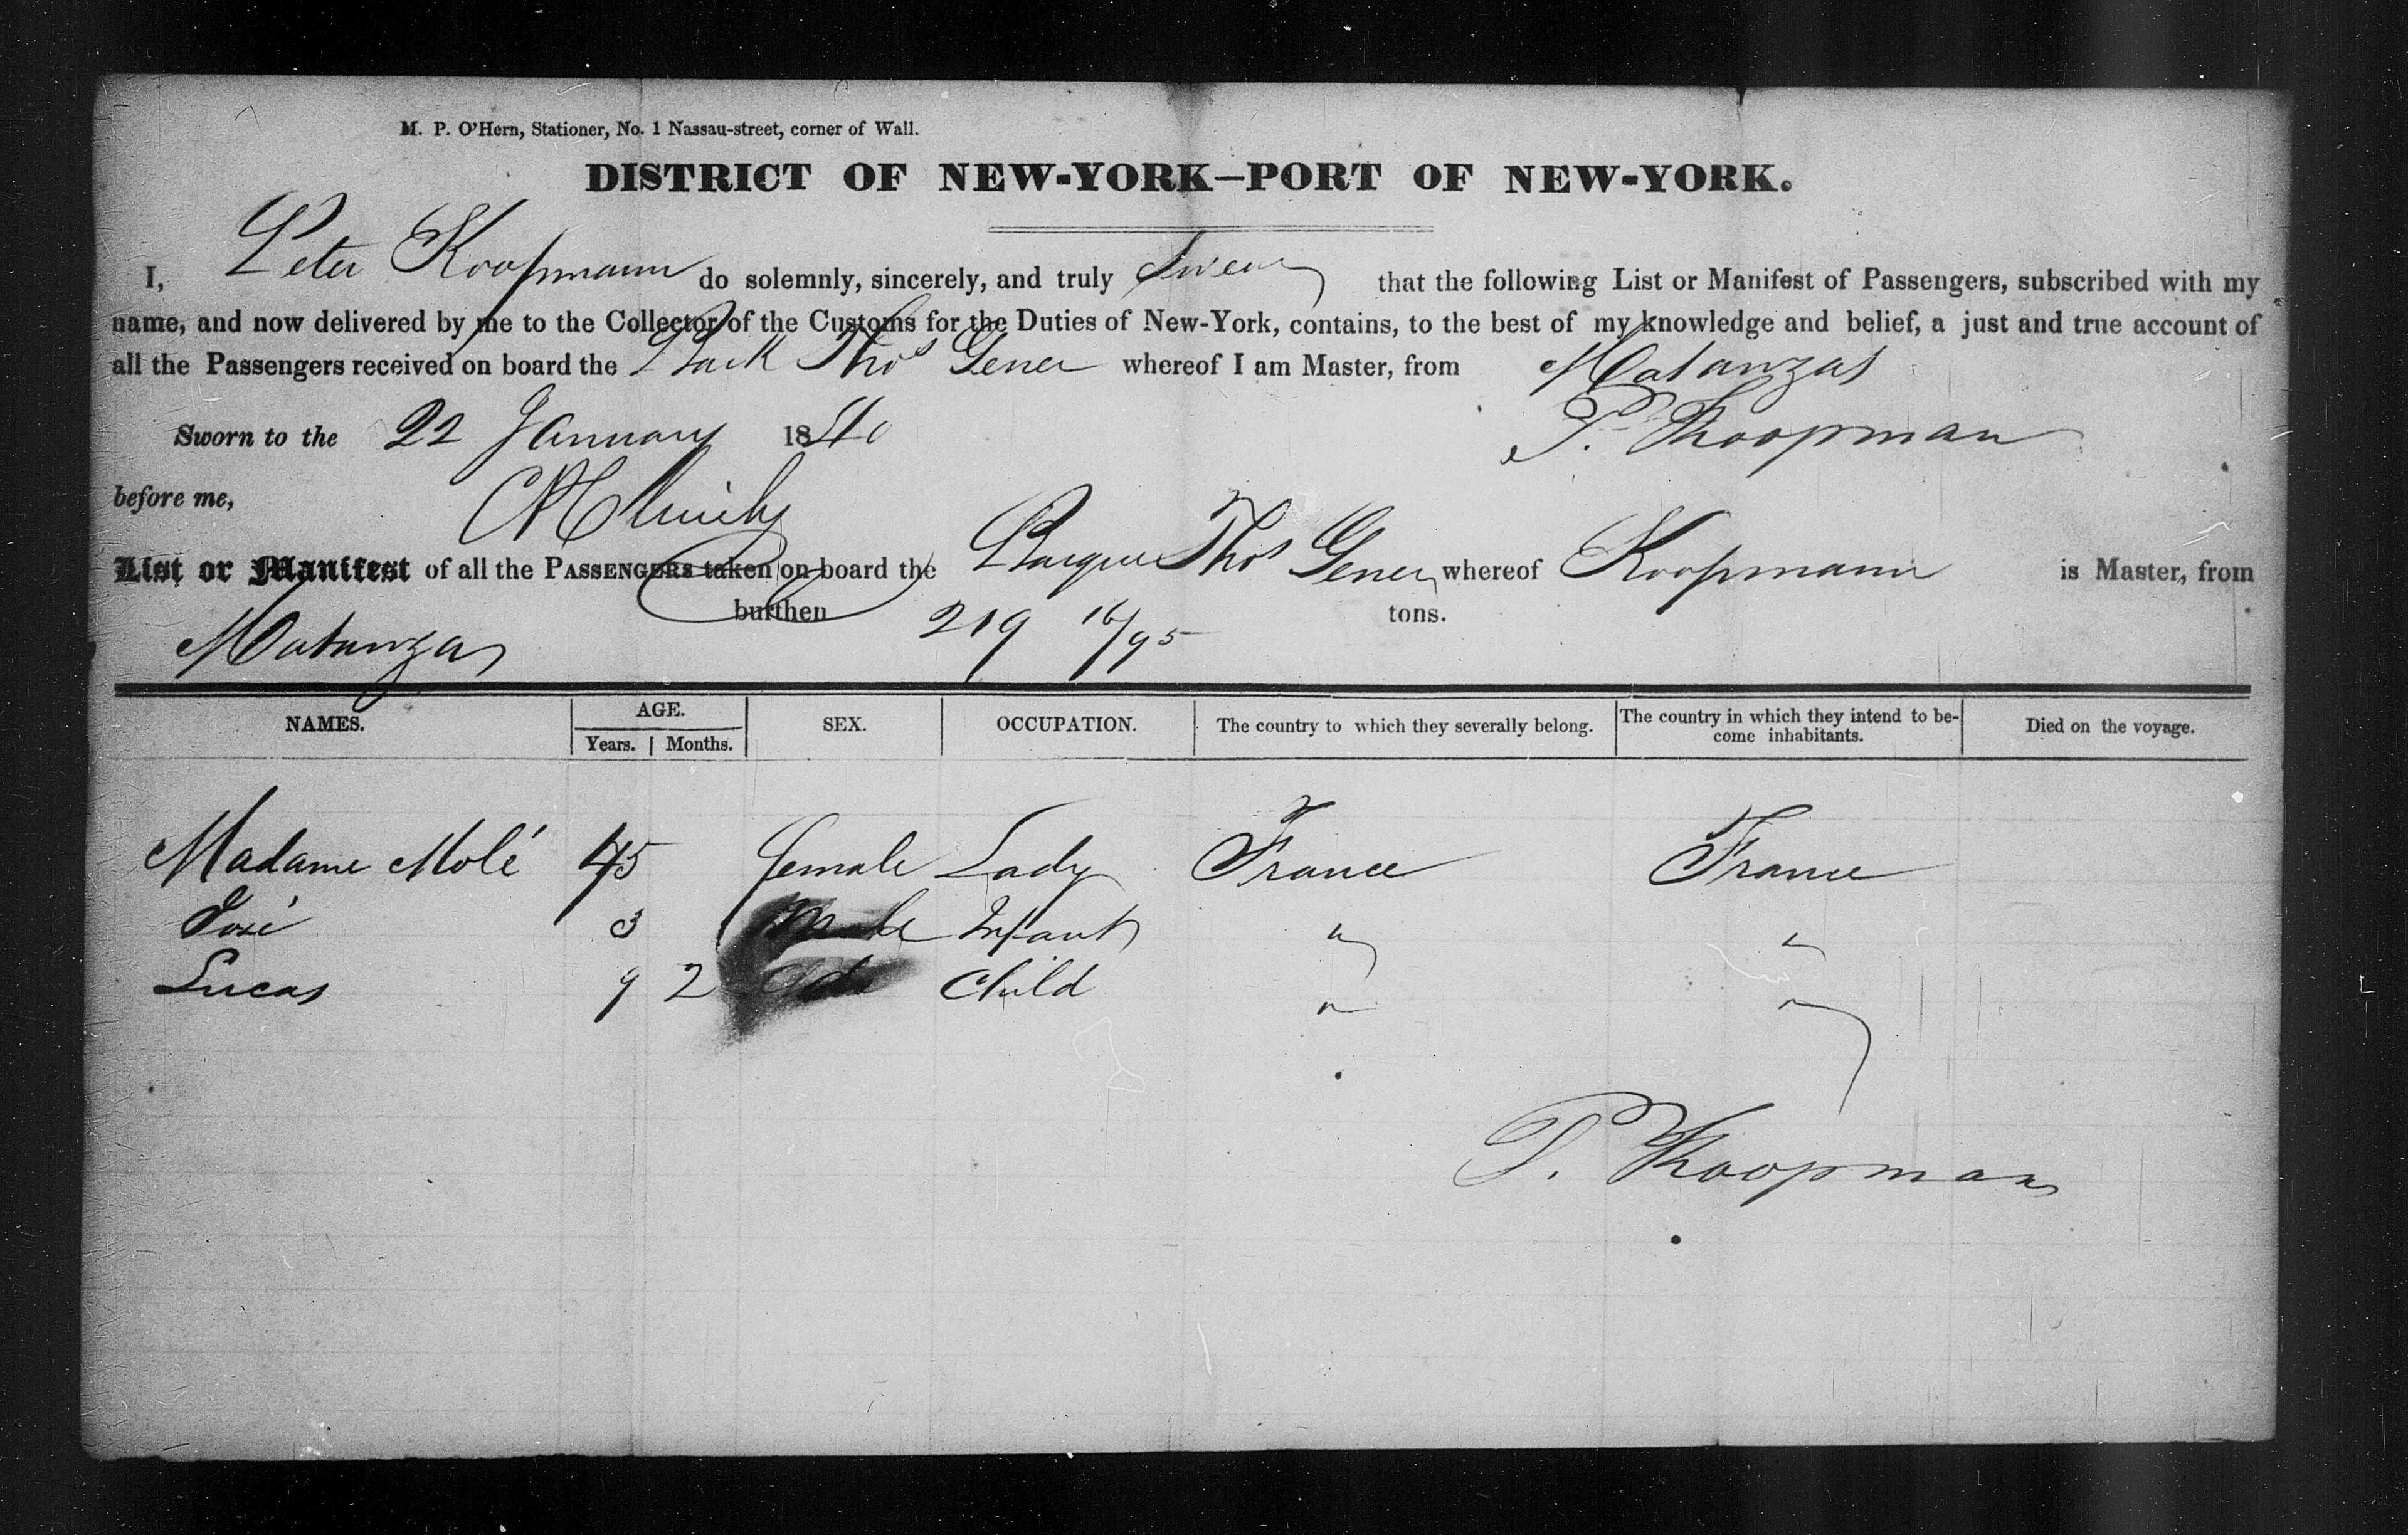 M. P. O'Hern, Stationer, No. 1 Nassau-street, corner of Wall.
DISTRICT OF NEW-YORK—PORT OF NEW-YORK.
I, Peter Koopmann do solemnly, sincerely, and truly Swear that the following List or Manifest of Passengers, subscribed with my
name, and now delivered by me to the Collector of the Customs for the Duties of New-York, contains, to the best of my knowledge and belief, a just and true account of
all the Passengers received on board the Bark Thos Gener whereof I am Master, from Matanzas
Sworn to the 22 January 1840 P. Koopman
before me,
List or Manifest of all the PASSENGERS taken on board the Barque Thos Gener whereof Koopmann is Master, from
Matanzas burthen 219 16/95 tons.
NAMES. AGE. SEX. OCCUPATION. The country to which they severally belong. The country in which they intend to be- Died on the voyage.
Years. Months. come inhabitants.
Madame Molé 45 female Lady France France
José 3 Male Infant " "
Lucas 9 2 do Child " "
P. Koopman